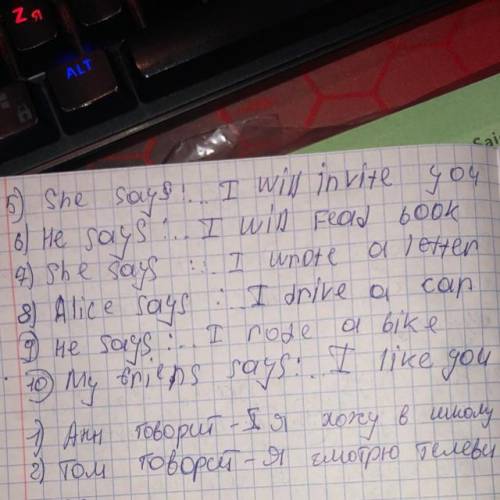 Z Я
ALT
Sai
5) She says:.. I will invite you
6) He says:.. I will read book
7) She says:.. I wrote a letter
8) Alice says:.. I drive a car
9) He says:.. I rode a bike
10) My friens says:.. I like you
1) Анн говорит - Я хожу в школу
2) Том говорит - Я смотрю телеви